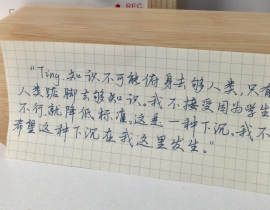 REC
"Ting.知识不可能俯身去够人类,只有
人类踮脚去够知识。我不接受因为学生
不行,就降低标准。这是一种下沉。我不
希望这种下沉在我这里发生。"